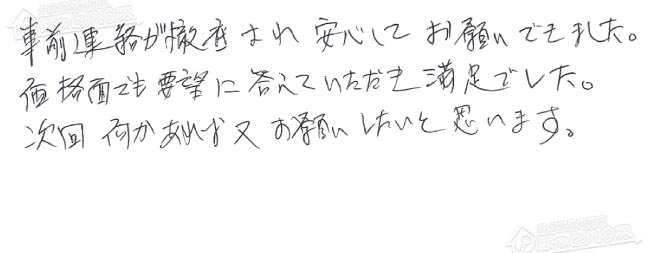 事前連絡が徹底され安心してお願いできました。
価格面でも要望に答えていただき満足でした。
次回何かあれば又お願いしたいと思います。